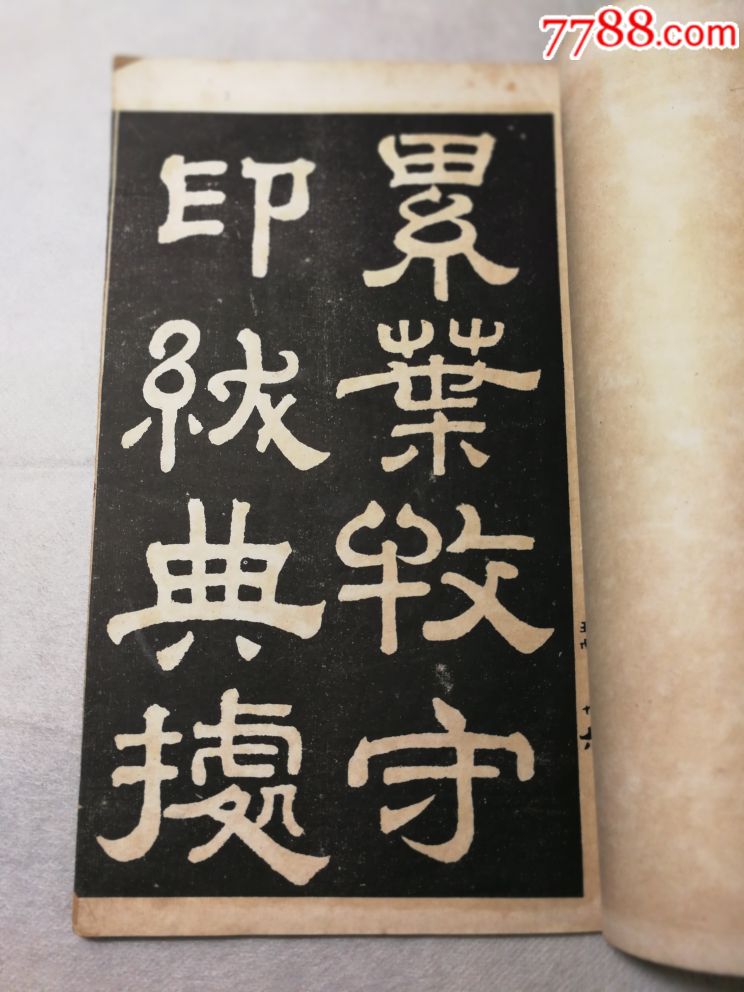 7788.com
累葉牧守
印紱典據